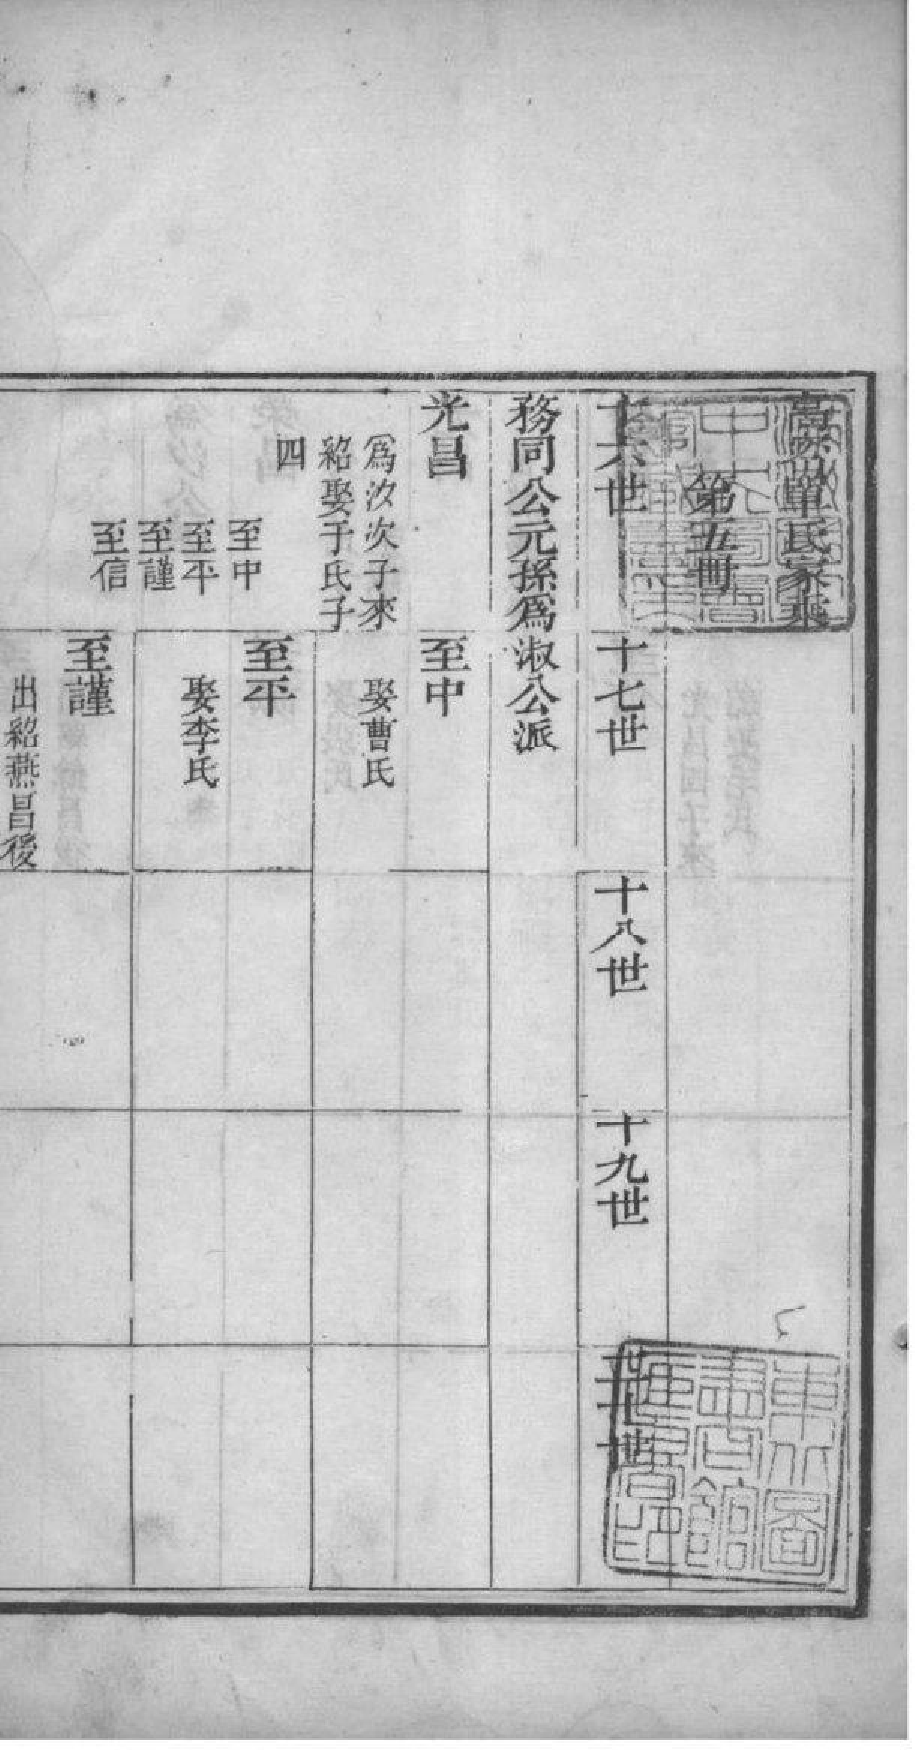 高密單氏家乘
第五冊
十六世
十七世
十八世
十九世
二十世
務同公元孫為淑公派
光昌
為汝次子來
紹娶于氏子
四
至中
至平
至謹
至信
至中
娶曹氏
至平
娶李氏
至謹
出紹燕昌後